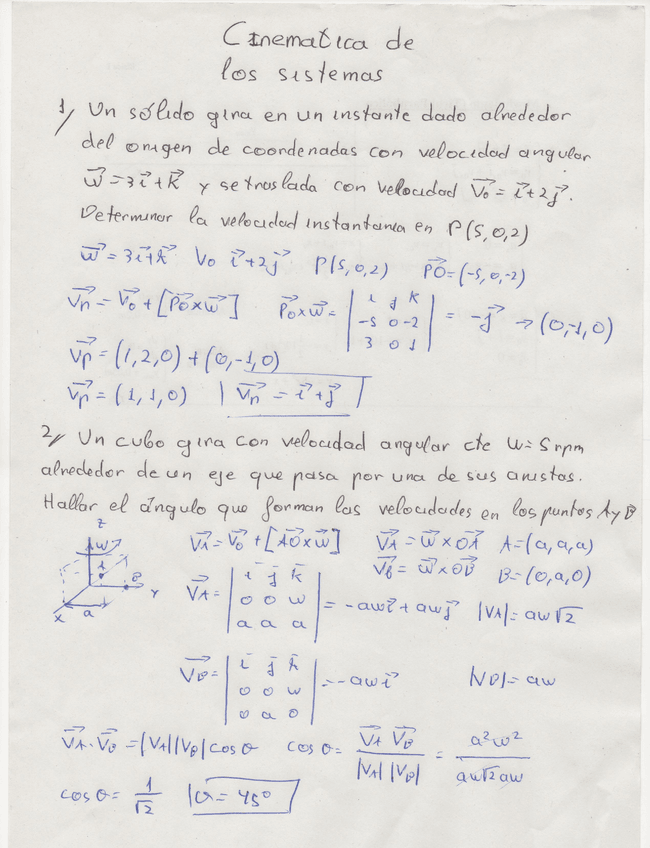 Cinematica de
los sistemas
1) Un sólido gira en un instante dado alrededor
del origen de coordenadas con velocidad angular
w⃗ = 3i⃗ + k⃗ y se traslada con velocidad V₀⃗ = i⃗ + 2j⃗.
Determinar la velocidad instantanea en P(5,0,2)
w⃗ = 3i⃗ + k⃗ V₀ i⃗ + 2j⃗ P(5,0,2) PO⃗ = (-5,0,-2)
Vp⃗ = V₀⃗ + [PO⃗ x w⃗] PO⃗ x w⃗ = | i j k | -5 0 -2 | 3 0 1 | = -j⃗ → (0,-1,0)
Vp⃗ = (1,2,0) + (0,-1,0)
Vp⃗ = (1,1,0) Vp⃗ = i⃗ + j⃗
2) Un cubo gira con velocidad angular cte w = 5 rpm
alrededor de un eje que pasa por una de sus aristas.
Hallar el ángulo que forman las velocidades en los puntos A y B
Z w A B Y X a
VA⃗ = V₀⃗ + [AO⃗ x w⃗] VA⃗ = w⃗ x OA⃗ A = (a,a,a)
VB⃗ = w⃗ x OB⃗ B = (0,a,0)
VA⃗ = | i j k | 0 0 w | a a a | = -awi⃗ + awj⃗ |VA| = aw√2
VB⃗ = | i j k | 0 0 w | 0 a 0 | = -awi⃗ |VB| = aw
VA⃗ · VB⃗ = |VA| |VB| cos θ cos θ = VA⃗ VB⃗ / |VA| |VB| = a²w² / aw√2 aw
cos θ = 1/√2 θ = 45°